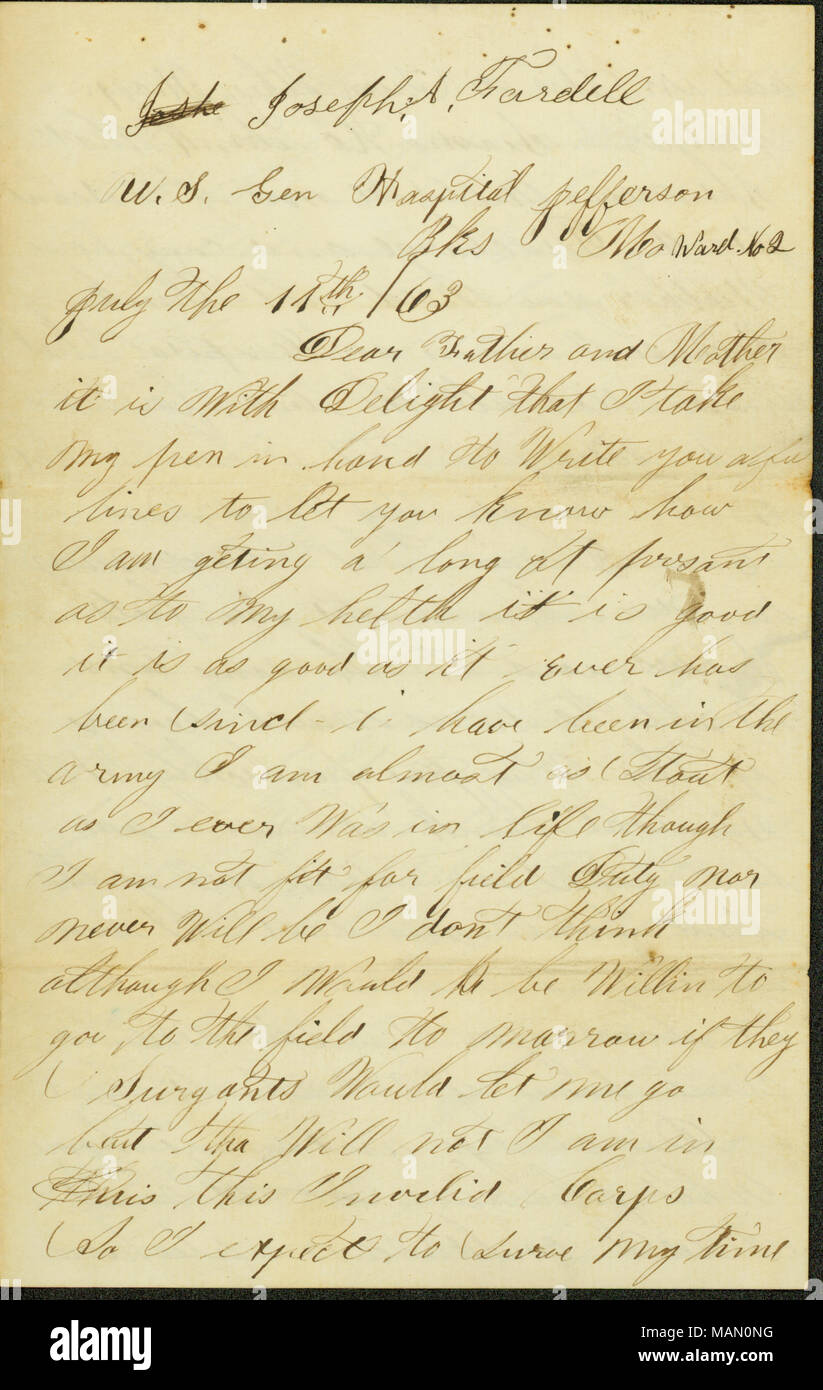 Joseph. A. Fardell
U. S. Gen Hospital Jefferson
Bks Mo Ward. No 2
july the 11th /63
Dear Father and Mother
it is With Delight that I take
my pen in hand to Write you a fu
lines to let you know how
I am geting a long at presant
as to my helth it is good
it is as good as it ever has
been sind i have been in the
army I am almost as Stout
as I ever Was in life though
I am not fit for field Duty nor
never Will be I dont think
although I Would be Willin to
go to the field to morrow if they
Surgants Would let me go
but tha Will not I am in
this Invalid Corps
So I expect to surve my time
alamy
Image ID: MAN0NG
www.alamy.com